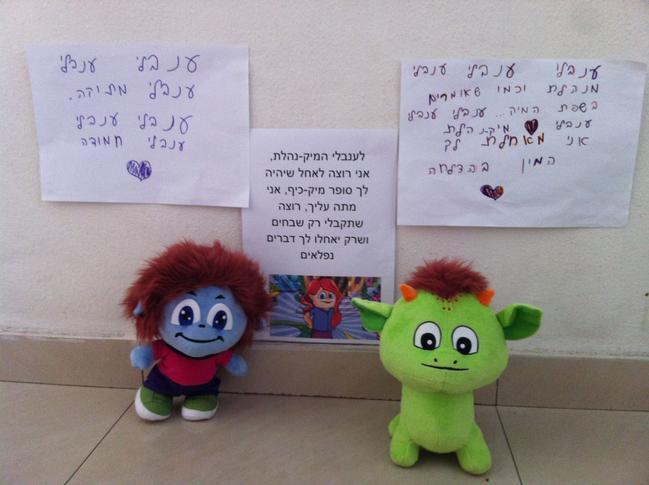 ענבלי ענבלי
ענבלי מתוקה.
ענבלי ענבלי
ענבלי חמודה
לענבלי המיק-נהלת,
אני רוצה לאחל שיהיה
לך סופר מיק-כיף, אני
מתה עליך, רוצה
שתקבלי רק שבחים
ושרק יאחלו לך דברים
נפלאים
ענבלי ענבלי ענבלי
מנהלת וכמו שאומרים
בשפת המיה... ענבלי ענבלי
ענבלי מיק-נהלת
אני מאחלת לך
המון בהצלחה